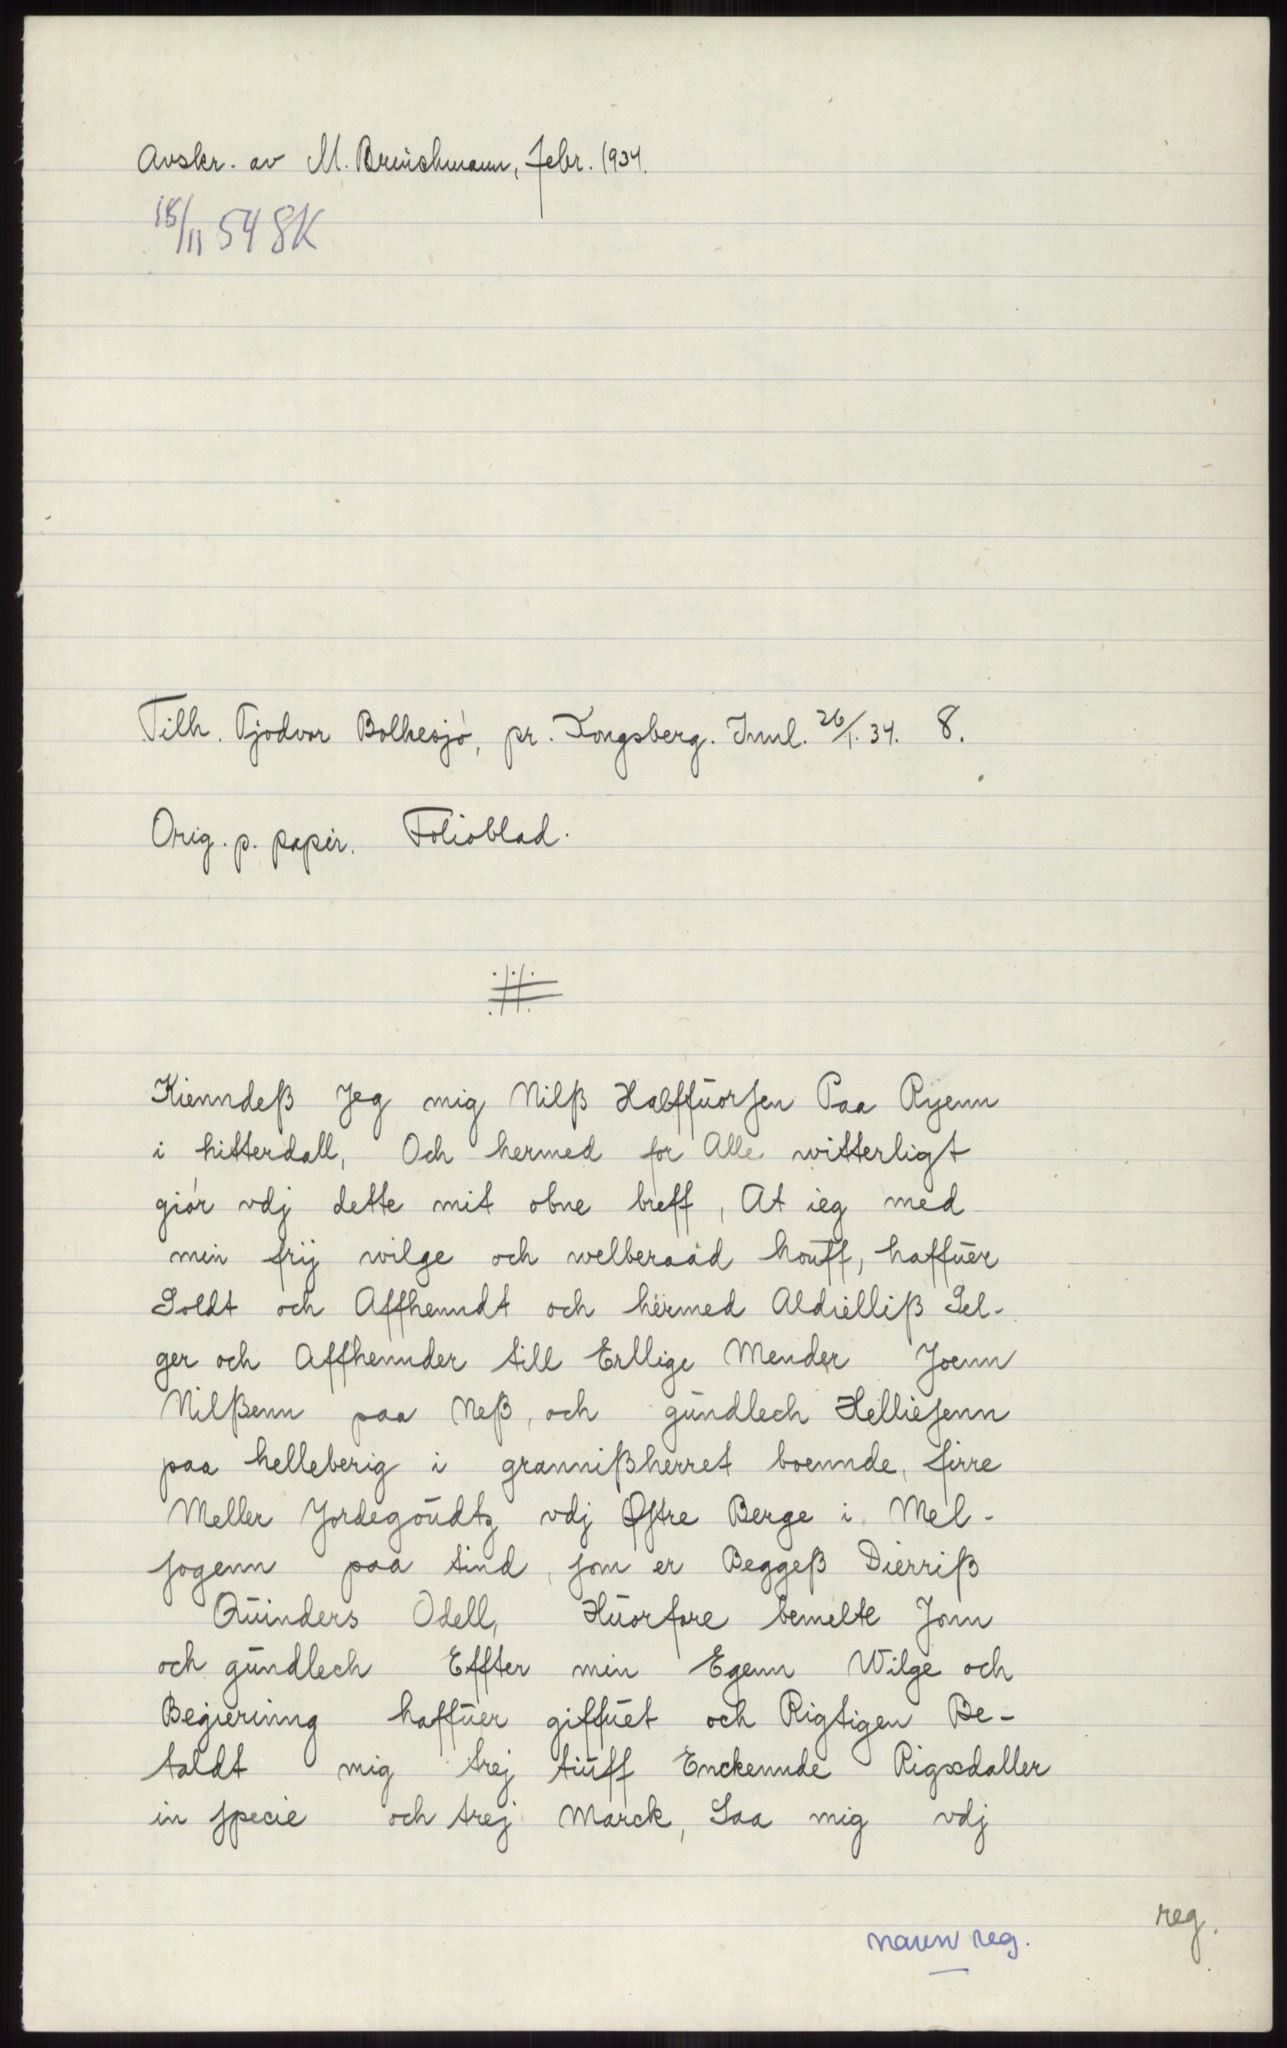 Avskr. av M. Brinchmann, febr. 1934.
18/11 54 SK
Tilh. Tjodvor Bolkesjö, pr. Kongsberg. Innl. 26/1. 34. 8.
Orig. p. papir. Folioblad.
Kienndeß Jeg mig Nilß Halffuorsen Paa Ryenn
i hitterdall, Och hermed for Alle witterligt
giör vdj dette mit obne breff, At ieg med
min frij wilge och welberaad houff, haffuer
Soldt och Affhenndt och hermed Aldielliß Sel-
ger och Affhennder till Erllige Mender Joenn
Nilßenn paa Neß, och gundlech Helliesenn
paa helleberig i grannißherret boennde, firre
Meller Jordegoudtz vdj Østre Berge i Mel-
sogenn paa tind, som er Beggeß Dierriß
Quinders Odell, Huorfore bemelte Jonn
och gundlech Effter min Egenn Wilge och
Begierinng haffuer giffuet och Rigtigen Be-
taldt mig trej tiuff Enckennde Rigsdaller
in specie och trej Marck, Saa mig vdj
reg.
navn reg.